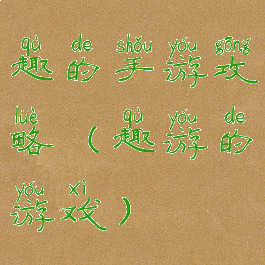 qù de shǒu yóu gōng
趣的手游攻
lüè qù yóu de
略（趣游的
yóu xì
游戏）